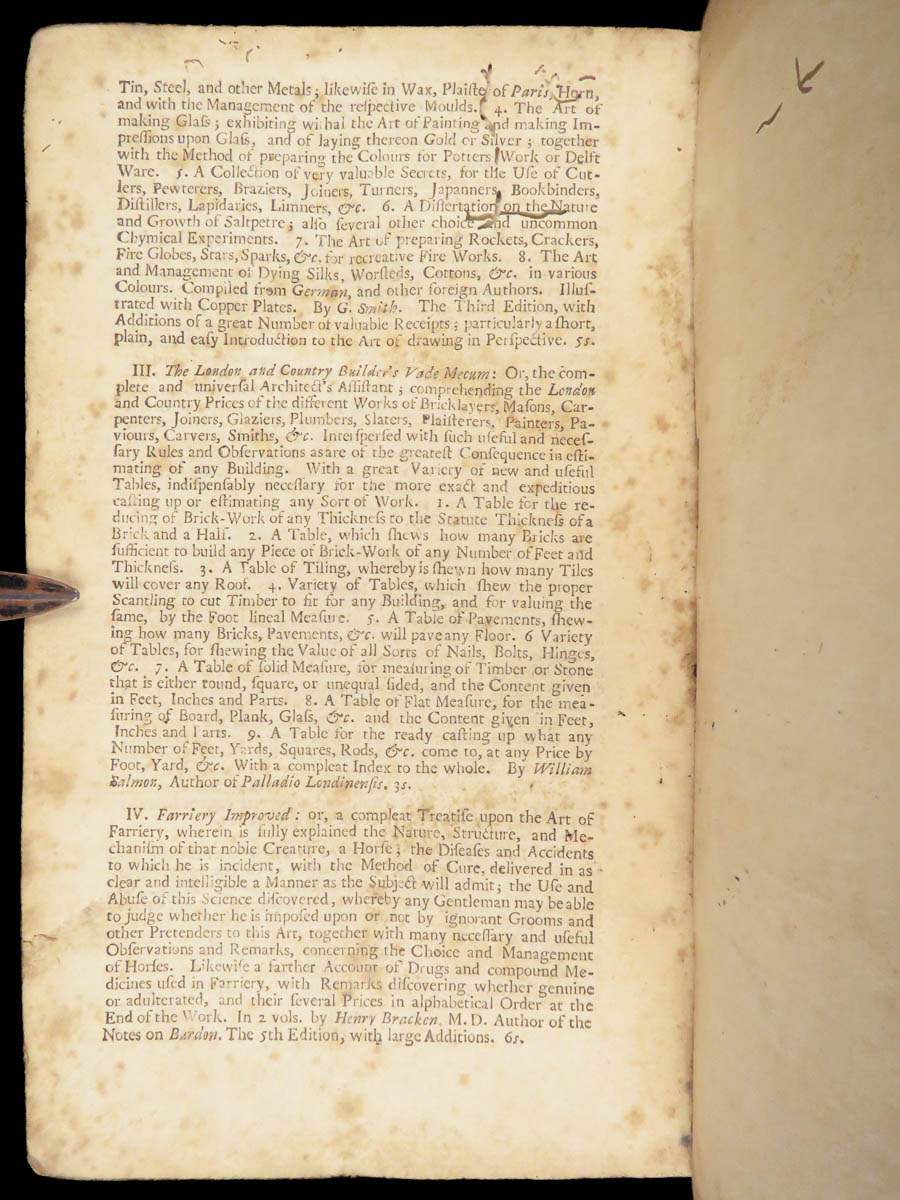 Tin, Steel, and other Metals; likewiſe in Wax, Plaiſte of Paris, Horn,
and with the Management of the reſpective Moulds. 4. The Art of
making Glaſs; exhibiting withal the Art of Painting and making Im-
preſſions upon Glaſs, and of laying thereon Gold or Silver; together
with the Method of preparing the Colours for Potters Work or Delft
Ware. 5. A Collection of very valuable Secrets, for the Uſe of Cut-
lers, Pewterers, Braziers, Joiners, Turners, Japanners, Bookbinders,
Diſtillers, Lapidaries, Limners, &c. 6. A Diſſertation on the Nature
and Growth of Saltpetre; alſo ſeveral other choice and uncommon
Chymical Experiments. 7. The Art of preparing Rockets, Crackers,
Fire Globes, Stars, Sparks, &c. for recreative Fire Works. 8. The Art
and Management of Dying Silks, Worſteds, Cottons, &c. in various
Colours. Compiled from German, and other foreign Authors. Illuſ-
trated with Copper Plates. By G. Smith. The Third Edition, with
Additions of a great Number of valuable Receipts; particularly a ſhort,
plain, and eaſy Introduction to the Art of drawing in Perſpective. 5s.
III. The London and Country Builder's Vade Mecum: Or, the com-
plete and univerſal Architect's Aſſiſtant; comprehending the London
and Country Prices of the different Works of Bricklayers, Maſons, Car-
penters, Joiners, Glaziers, Plumbers, Slaters, Plaiſterers, Painters, Pa-
viours, Carvers, Smiths, &c. Interſperſed with ſuch uſeful and neceſ-
ſary Rules and Obſervations as are of the greateſt Conſequence in eſti-
mating of any Building. With a great Variety of new and uſeful
Tables, indiſpenſably neceſſary for the more exact and expeditious
caſting up or eſtimating any Sort of Work. 1. A Table for the re-
ducing of Brick-Work of any Thickneſs to the Statute Thickneſs of a
Brick and a Half. 2. A Table, which ſhews how many Bricks are
ſufficient to build any Piece of Brick-Work of any Number of Feet and
Thickneſs. 3. A Table of Tiling, whereby is ſhewn how many Tiles
will cover any Roof. 4. Variety of Tables, which ſhew the proper
Scantling to cut Timber to fit for any Building, and for valuing the
ſame, by the Foot lineal Meaſure. 5. A Table of Pavements, ſhew-
ing how many Bricks, Pavements, &c. will pave any Floor. 6 Variety
of Tables, for ſhewing the Value of all Sorts of Nails, Bolts, Hinges,
&c. 7. A Table of ſolid Meaſure, for meaſuring of Timber or Stone
that is either round, ſquare, or unequal ſided, and the Content given
in Feet, Inches and Parts. 8. A Table of Flat Meaſure, for the mea-
ſuring of Board, Plank, Glaſs, &c. and the Content given in Feet,
Inches and Parts. 9. A Table for the ready caſting up what any
Number of Feet, Yards, Squares, Rods, &c. come to, at any Price by
Foot, Yard, &c. With a compleat Index to the whole. By William
Salmon, Author of Palladio Londinenſis. 3s.
IV. Farriery Improved: or, a compleat Treatiſe upon the Art of
Farriery, wherein is fully explained the Nature, Structure, and Me-
chaniſm of that noble Creature, a Horſe; the Diſeaſes and Accidents
to which he is incident, with the Method of Cure, delivered in as
clear and intelligible a Manner as the Subject will admit; the Uſe and
Abuſe of this Science diſcovered, whereby any Gentleman may be able
to judge whether he is impoſed upon or not by ignorant Grooms and
other Pretenders to this Art, together with many neceſſary and uſeful
Obſervations and Remarks, concerning the Choice and Management
of Horſes. Likewiſe a farther Account of Drugs and compound Me-
dicines uſed in Farriery, with Remarks diſcovering whether genuine
or adulterated, and their ſeveral Prices in alphabetical Order at the
End of the Work. In 2 vols. by Henry Bracken, M. D. Author of the
Notes on Burdon. The 5th Edition, with large Additions. 6s.